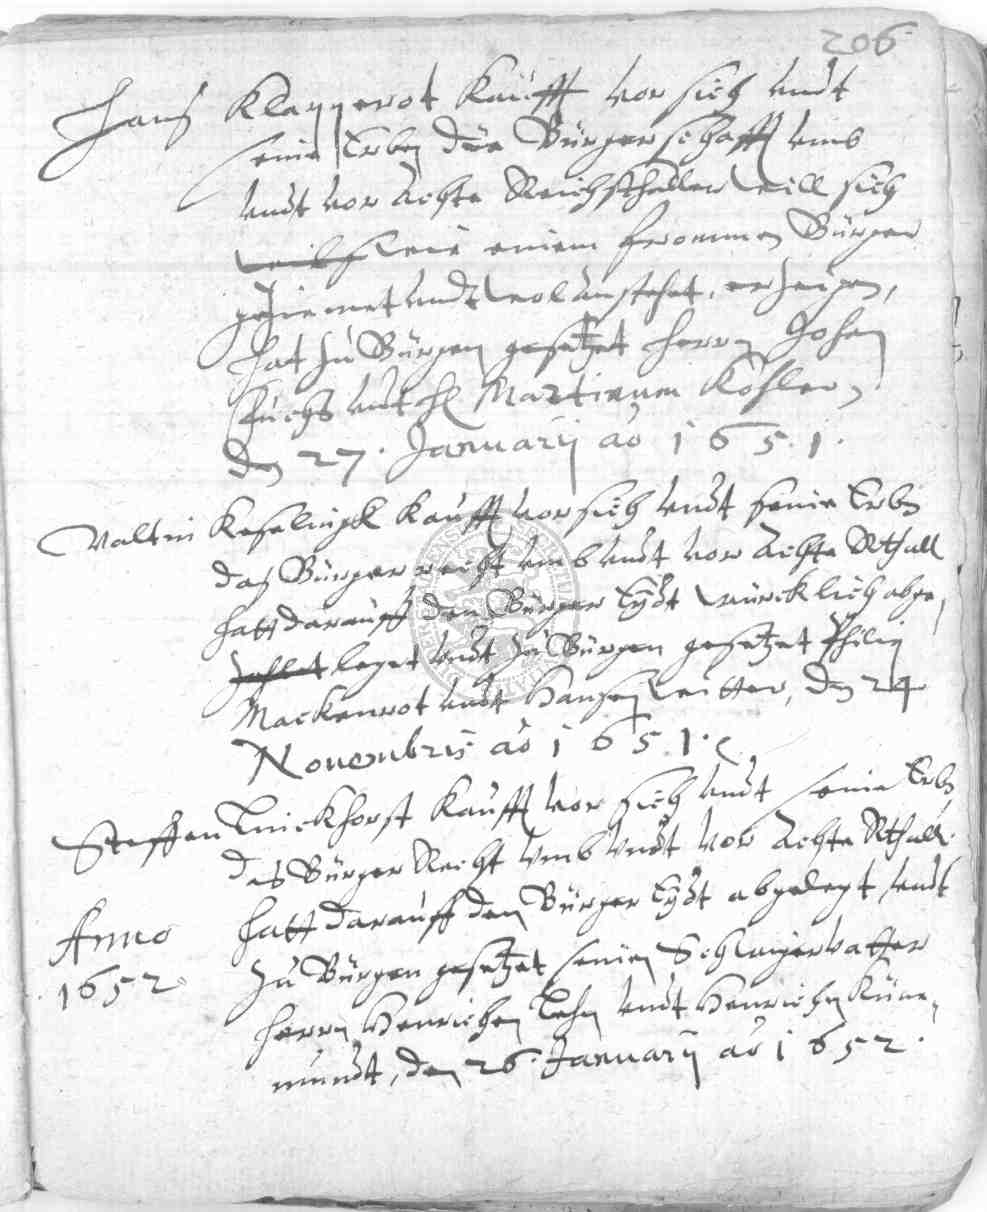 206
Hans Klapperot Kaufft vor sich undt
seine Erben die Bürgerschafft umb
undt vor Achte Reichsthaller will sich
wie einem frommen Bürger
geziemet undt wol anstehet, erzeigen,
hat zu Bürgen gesetzet Herrn Johan
Fuchs undt H Martinum Köhlern
den 27. Januarij ao 1651.
Valtin Keseling Kaufft vor sich undt seine Erben
daß Bürgerrecht umb undt vor Achte Rthall
hatt darauff den Bürger Eydt würcklich abge,
leget undt zu Bürgen gesetzet Philip
Mackenrot undt Hansen Ritter, den 24
Novembris ao 1651.
Steffan Knickhorst Kaufft vor sich undt seine Erben
das Bürger Recht umb undt vor Achte Rthall.
hatt darauff den Bürger Eydt abgelegt, undt
Anno
1652
zu Bürgen gesetzet seinen Schwigervatter
Herrn Henrichen undt Henrichen Küne,
mundt, den 26. Januarij ao 1652.